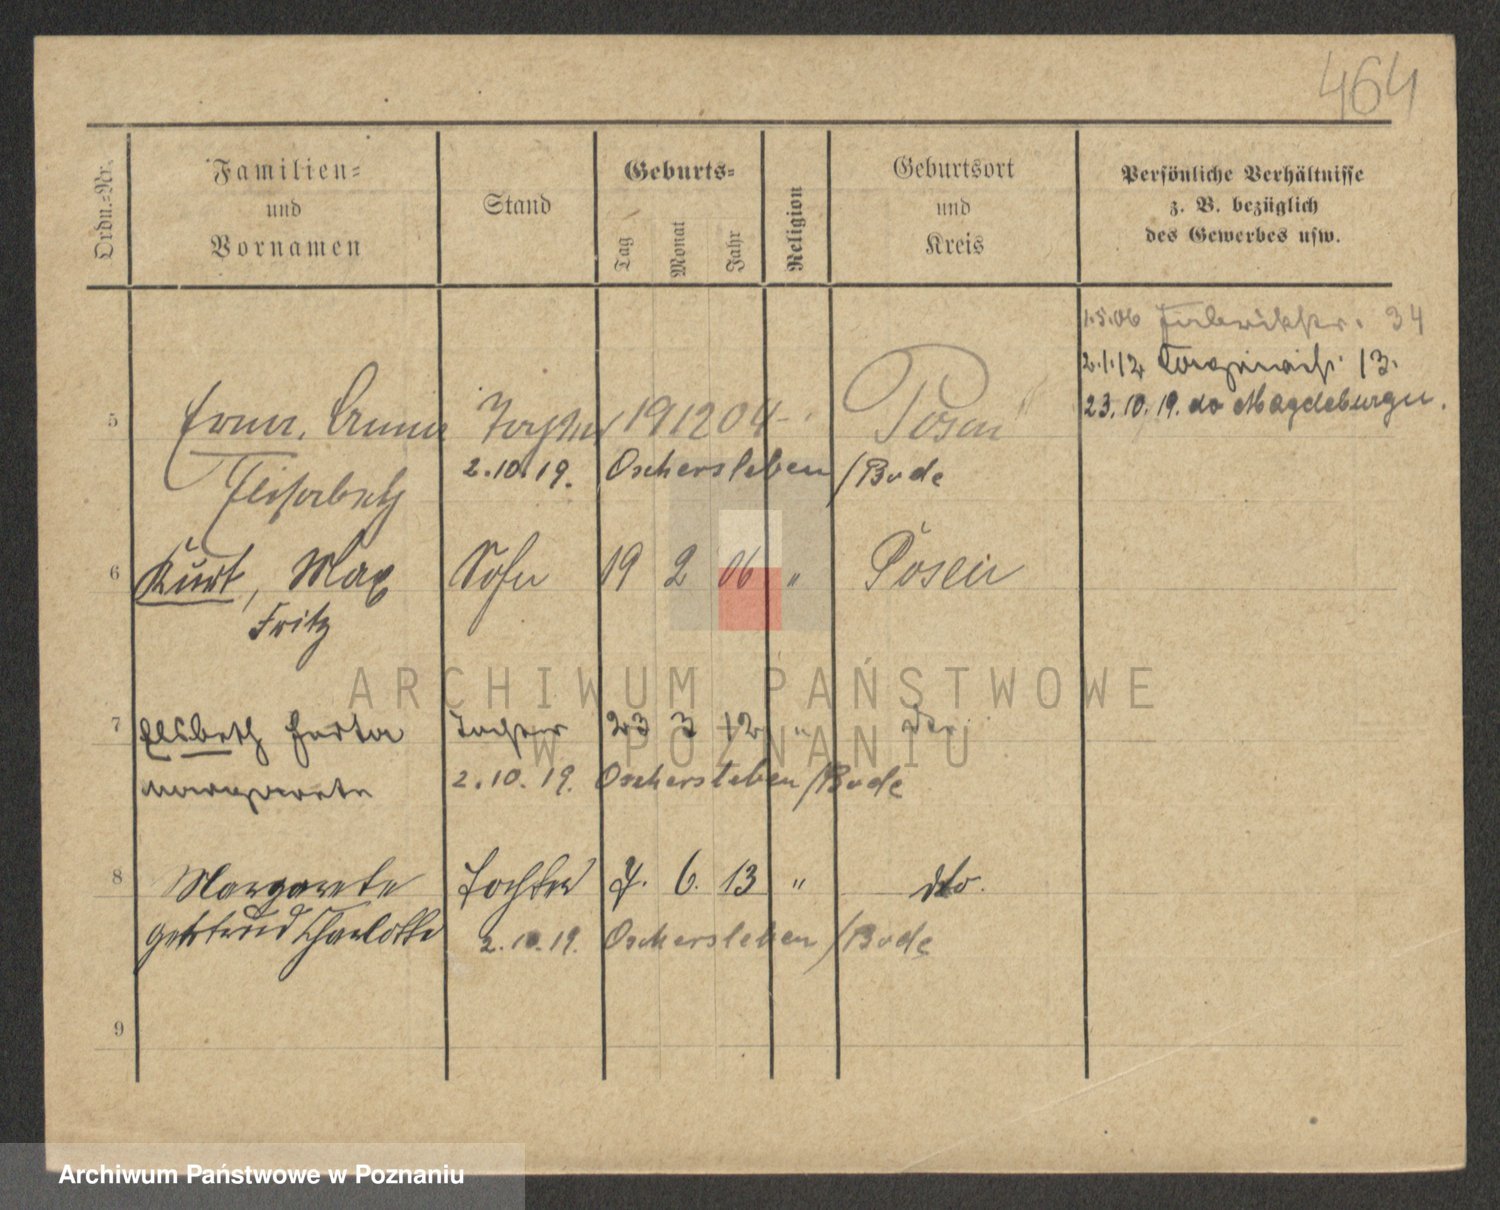 464
Ordn.-Nr.
Familien-
und
Vornamen
Stand
Geburts-
Tag
Monat
Jahr
Religion
Geburtsort
und
Kreis
Persönliche Verhältnisse
z. B. bezüglich
des Gewerbes usw.
1.5.06 Fabrikstr. 34
2.1.12 13.
23.10.19. do Magdeburger.
5 Erna, Anna Tochter 19 12 04 Posen
2.10.19. Oschersleben/Bode
Elisabeth
6 Kurt, Max Sohn 19 2 06 " Posen
Fritz
7 Elsbeth Herta Tochter 23 3 12 "
Margarete 2.10.19. Oschersleben/Bode
8 Margarete Tochter 7. 6. 13 " dto.
Gertrud Charlotte 2.10.19. Oschersleben/Bode
9
ARCHIWUM PAŃSTWOWE
W POZNANIU
Archiwum Państwowe w Poznaniu